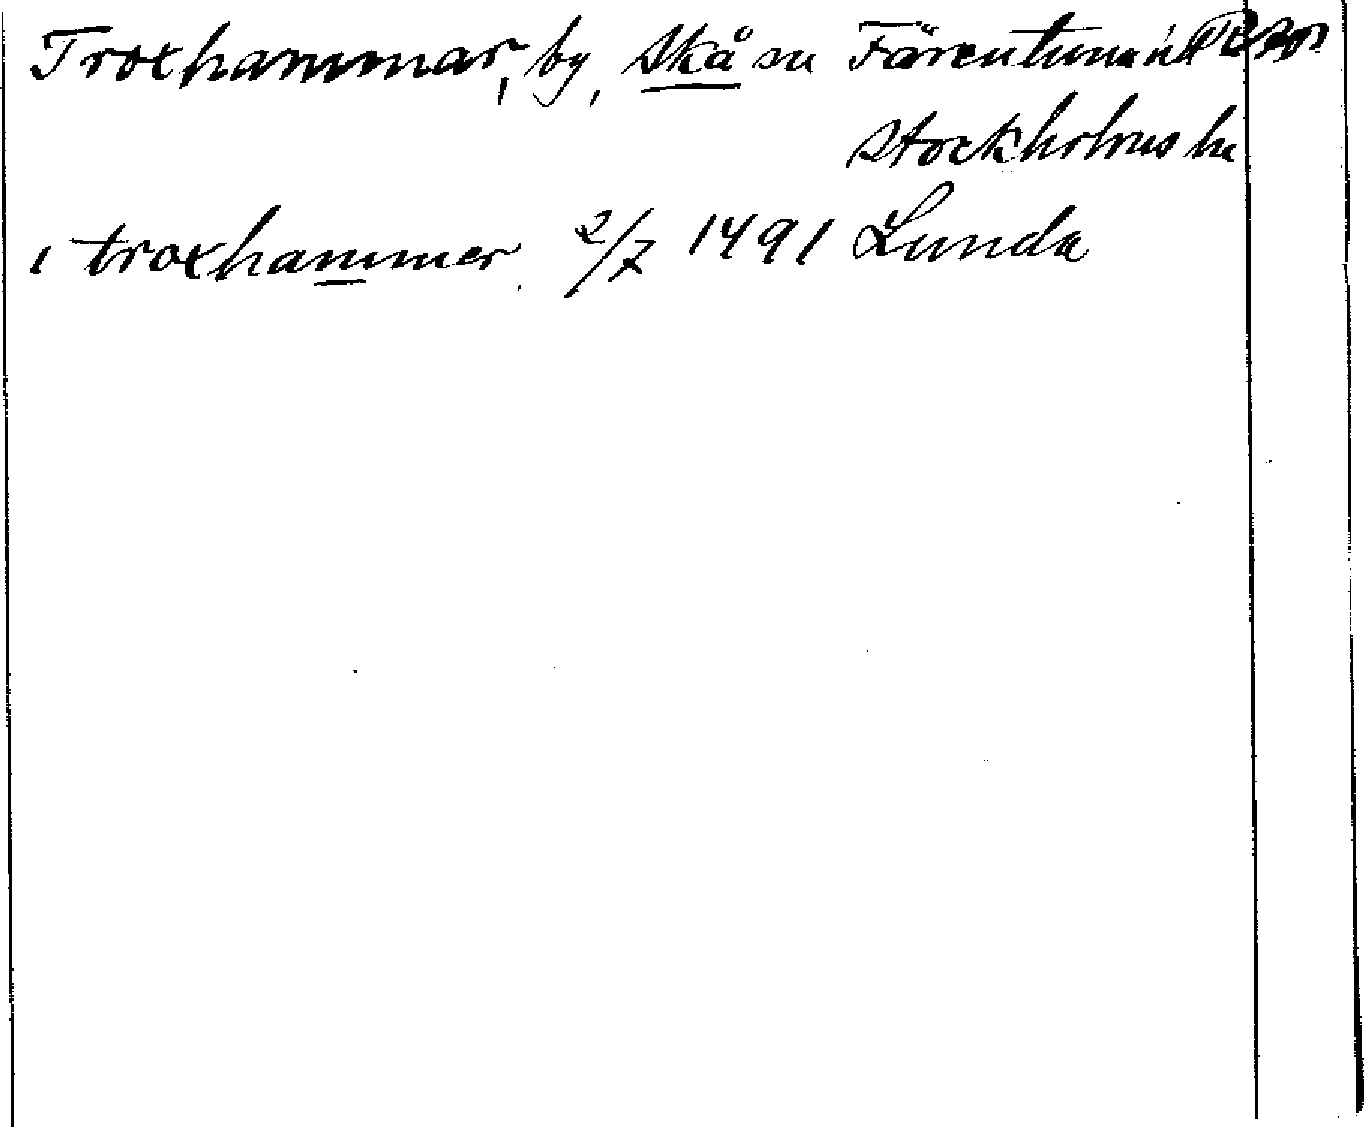 Troxhammar, by, Skå sn Färentuna hd
Stockholms län
i troxhammer 2/7 1491 Lunda